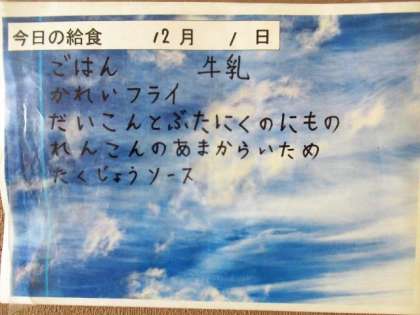 今日の給食 12月 1日
ごはん 牛乳
かれいフライ
だいこんとぶたにくのにもの
れんこんのあまからいため
たくじょうソース